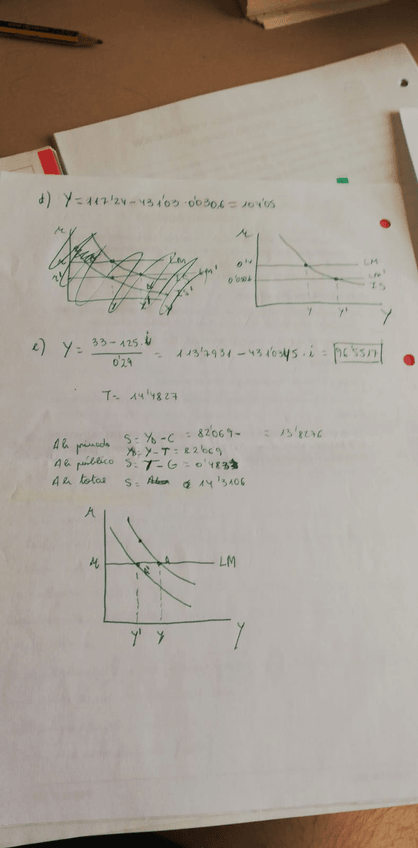 d) Y = 117'24 - 431'03 · 0'0306 = 104'05
r
LM
LM'
IS'
Y
r
0'04
0'0306
LM
LM'
IS
Y Y'
Y
e) Y = 33 - 125 · i / 0'29 = 113'7931 - 431'0345 · i = 96'5517
T = 14'4827
Ah privado S = YD - C = 82'069 - = 13'8276
YD = Y - T = 82'069
Ah público S = T - G = 0'483
Ah total S = 14'3106
r
r
LM
Y' Y
Y